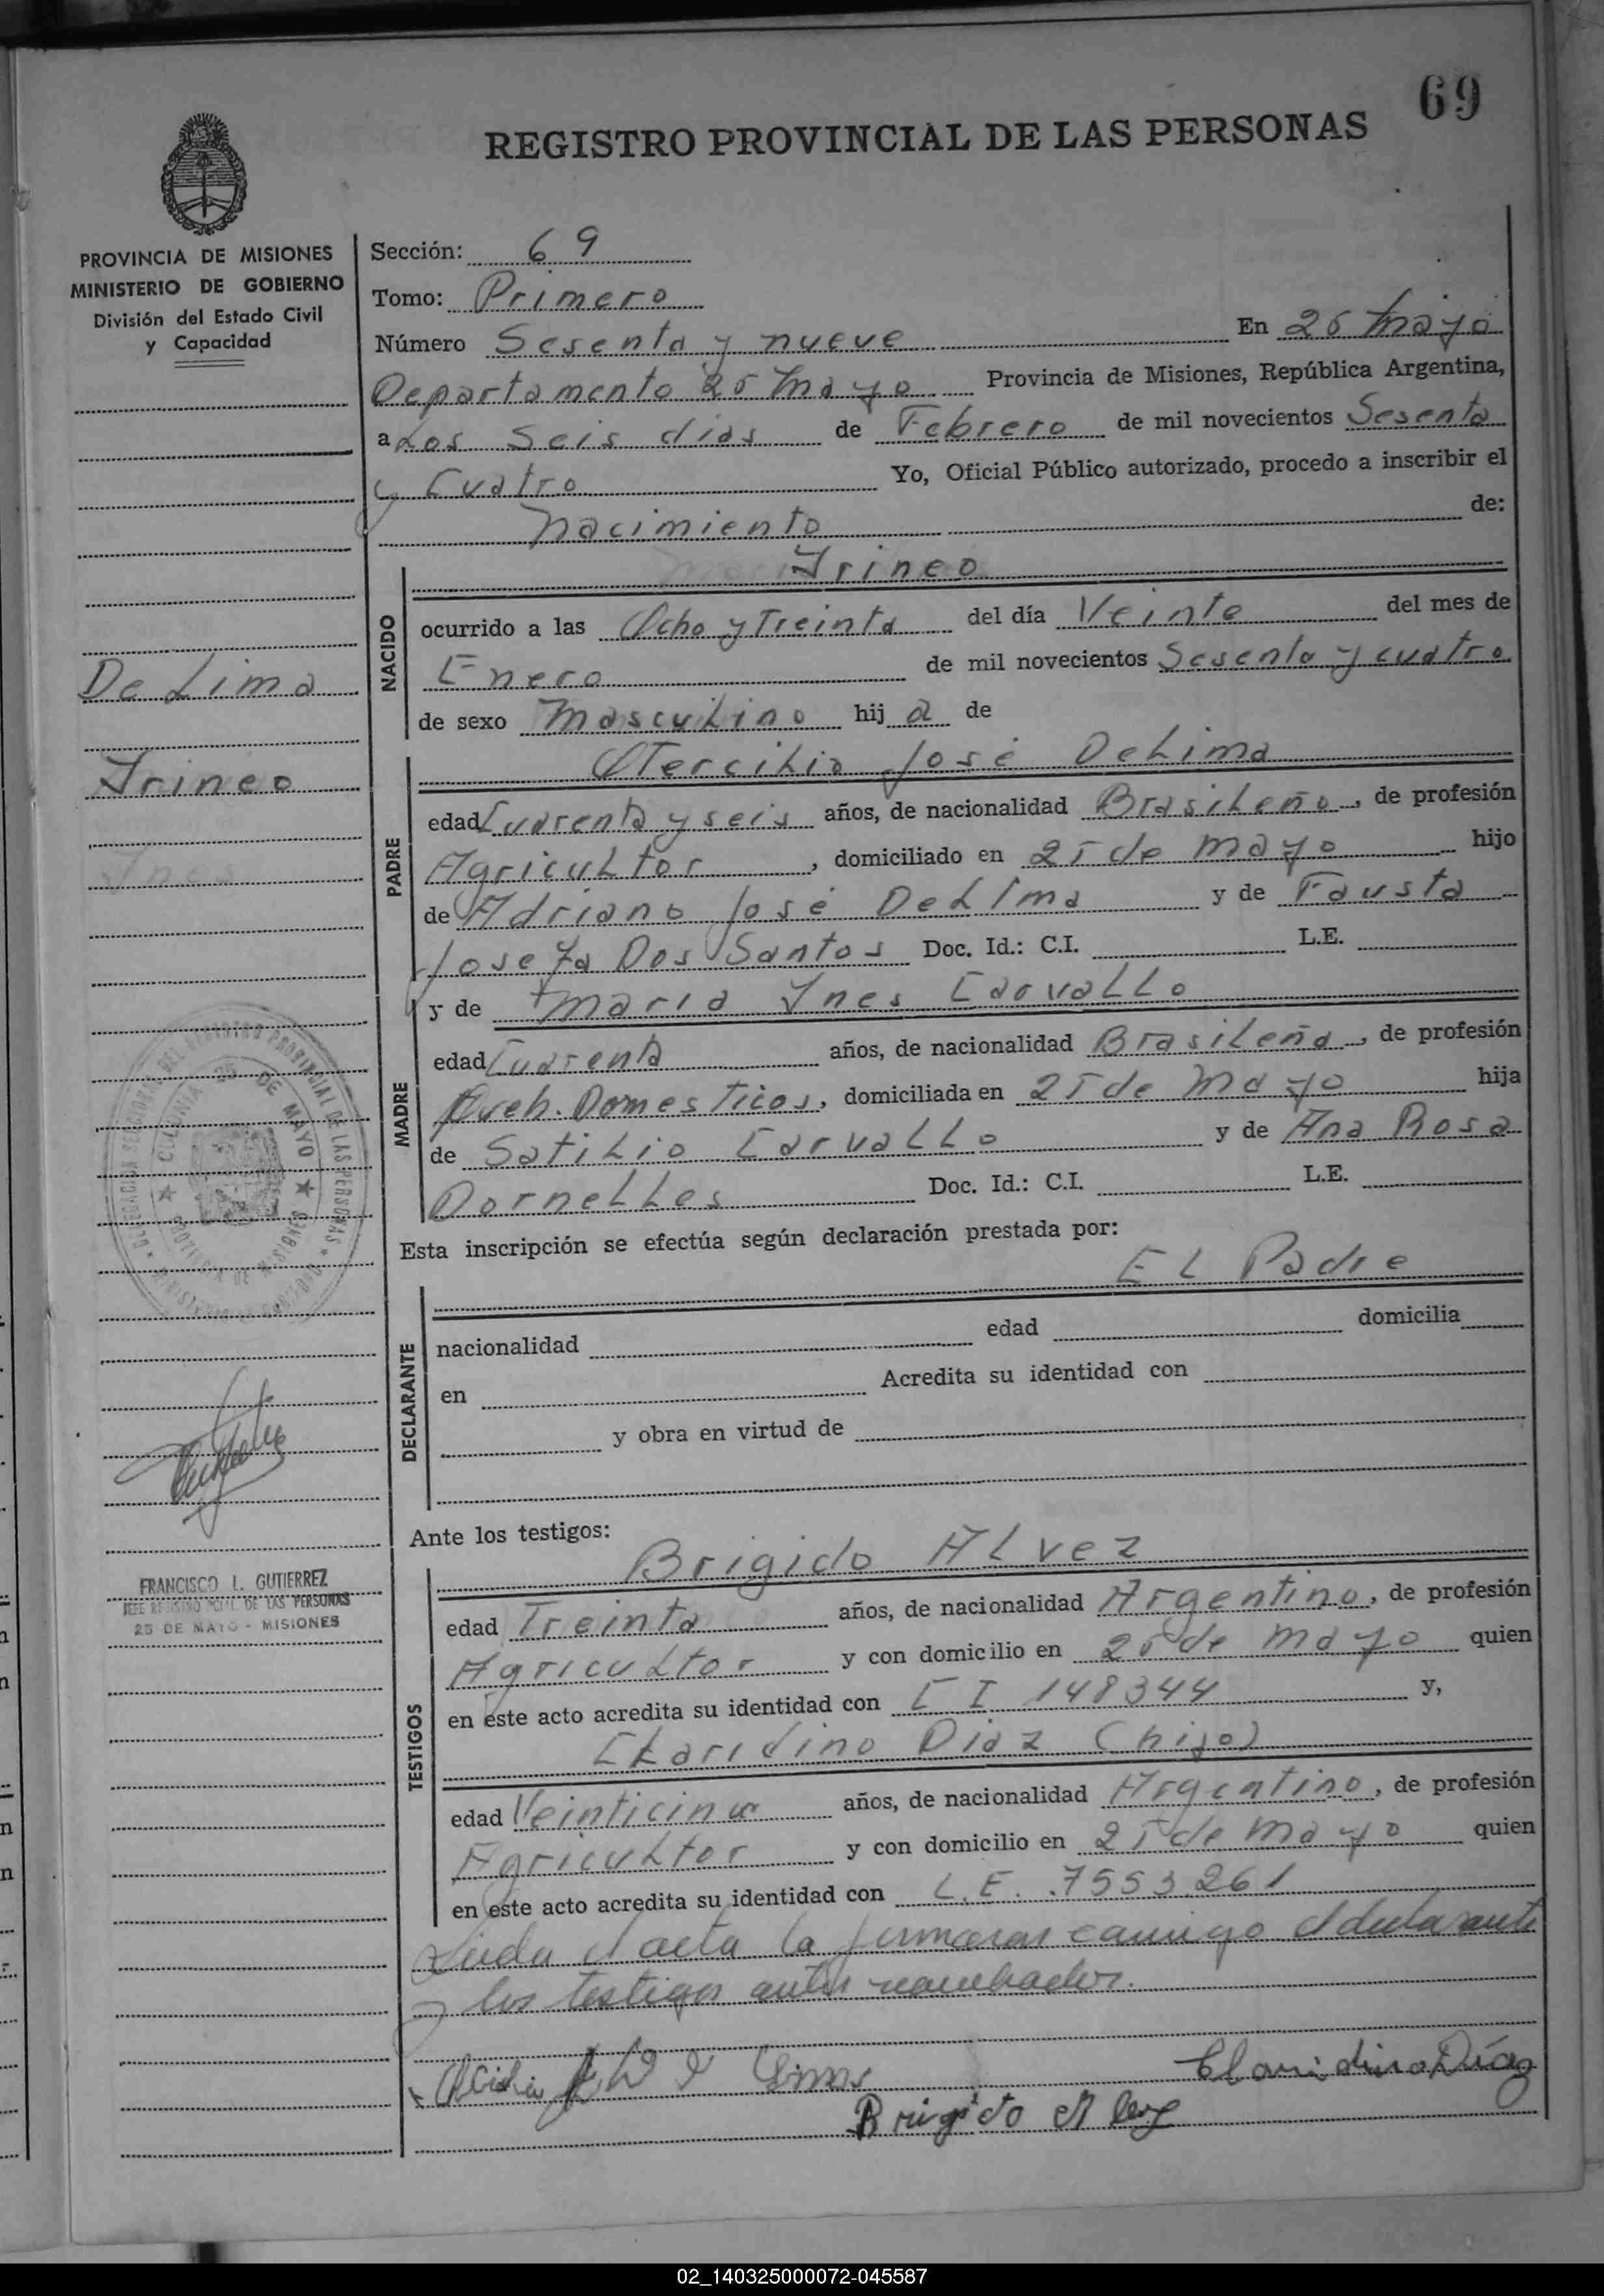 69
REGISTRO PROVINCIAL DE LAS PERSONAS
PROVINCIA DE MISIONES
MINISTERIO DE GOBIERNO
División del Estado Civil
y Capacidad
De Lima
Irineo
FRANCISCO L. GUTIERREZ
JEFE REGISTRO PCIAL. DE LAS PERSONAS
25 DE MAYO - MISIONES
Sección: 69
Tomo: Primero
Número Sesenta y nueve En 25 mayo
Departamento 25 mayo Provincia de Misiones, República Argentina,
a Los Seis dias de Febrero de mil novecientos Sesenta
y Cuatro Yo, Oficial Público autorizado, procedo a inscribir el
nacimiento de:
NACIDO
Irineo
ocurrido a las Ocho y Treinta del día Veinte del mes de
Enero de mil novecientos Sesenta y cuatro
de sexo masculino hij a de
PADRE
Otercilio José De Lima
edad Cuarenta y seis años, de nacionalidad Brasileño, de profesión
Agricultor, domiciliado en 25 de mayo hijo
de Adriano José De Lima y de Fausta
Josefa Dos Santos Doc. Id.: C.I. L.E.
MADRE
y de maria Ines Carvallo
edad Cuarenta años, de nacionalidad Brasileña, de profesión
Queh. Domesticos, domiciliada en 25 de mayo hija
de Satilio Carvallo y de Ana Rosa
Dornelles Doc. Id.: C.I. L.E.
Esta inscripción se efectúa según declaración prestada por:
El Padre
DECLARANTE
nacionalidad edad domicilia
en Acredita su identidad con
y obra en virtud de
Ante los testigos:
TESTIGOS
Brigido Alvez
edad Treinta años, de nacionalidad Argentino, de profesión
Agricultor y con domicilio en 25 de mayo quien
en este acto acredita su identidad con C I 148344 y,
Claridino Diaz (hijo)
edad Veinticinco años, de nacionalidad Argentino, de profesión
Agricultor y con domicilio en 25 de mayo quien
en este acto acredita su identidad con L.E. 7553.261
Leida el acta la firmaron conmigo el declarante
y los testigos antes nombrados.
Claridino Díaz
Brigido Alvez
02_140325000072-045587